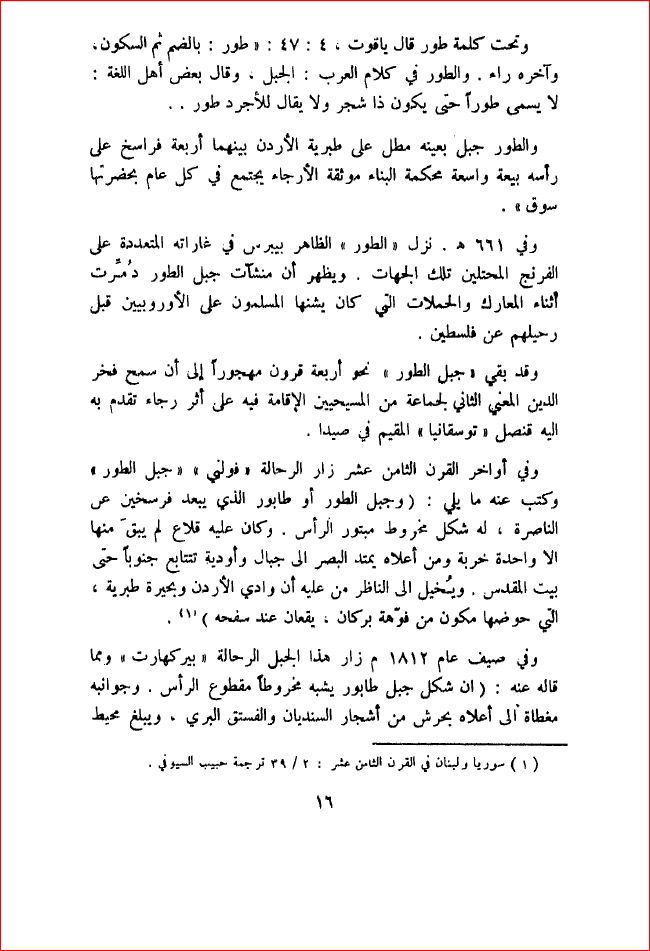 وتحت كلمة طور قال ياقوت ، ٤ : ٤٧ : « طور : بالضم ثم السكون،
وآخره راء . والطور في كلام العرب : الجبل ، وقال بعض أهل اللغة :
لا يسمى طوراً حتى يكون ذا شجر ولا يقال للأجرد طور . .
والطور جبل بعينه مطل على طبرية الأردن بينهما أربعة فراسخ على
رأسه بيعة واسعة محكمة البناء موثقة الأرجاء يجتمع في كل عام بحضرتها
سوق » .
وفي ٦٦١ ه . نزل « الطور » الظاهر بيبرس في غاراته المتعددة على
الفرنج المحتلين تلك الجهات . ويظهر أن منشآت جبل الطور دُمِّرت
أثناء المعارك والحملات التي كان يشنها المسلمون على الأوروبيين قبل
رحيلهم عن فلسطين .
وقد بقي « جبل الطور » نحو أربعة قرون مهجوراً إلى أن سمح فخر
الدين المعني الثاني لجماعة من المسيحيين الإقامة فيه على أثر رجاء تقدم به
اليه قنصل « توسقانيا » المقيم في صيدا .
وفي أواخر القرن الثامن عشر زار الرحالة « فولني » « جبل الطور »
وكتب عنه ما يلي : ( وجبل الطور أو طابور الذي يبعد فرسخين عن
الناصرة ، له شكل مخروط مبتور الرأس . وكان عليه قلاع لم يبقَ منها
الا واحدة خربة ومن أعلاه يمتد البصر الى جبال وأودية تتتابع جنوباً حتى
بيت المقدس . ويُخيل الى الناظر من عليه أن وادي الأردن وبحيرة طبرية ،
التي حوضها مكون من فوّهة بركان ، يقعان عند سفحه ) (١) .
وفي صيف عام ١٨١٢ م زار هذا الجبل الرحالة « بيركهارت » ومما
قاله عنه : ( ان شكل جبل طابور يشبه مخروطاً مقطوع الرأس . وجوانبه
مغطاة الى أعلاه بحرش من أشجار السنديان والفستق البري ، ويبلغ محيط
( ١ ) سوريا ولبنان في القرن الثامن عشر : ٢ / ٣٩ ترجمة حبيب السيوفي .
١٦